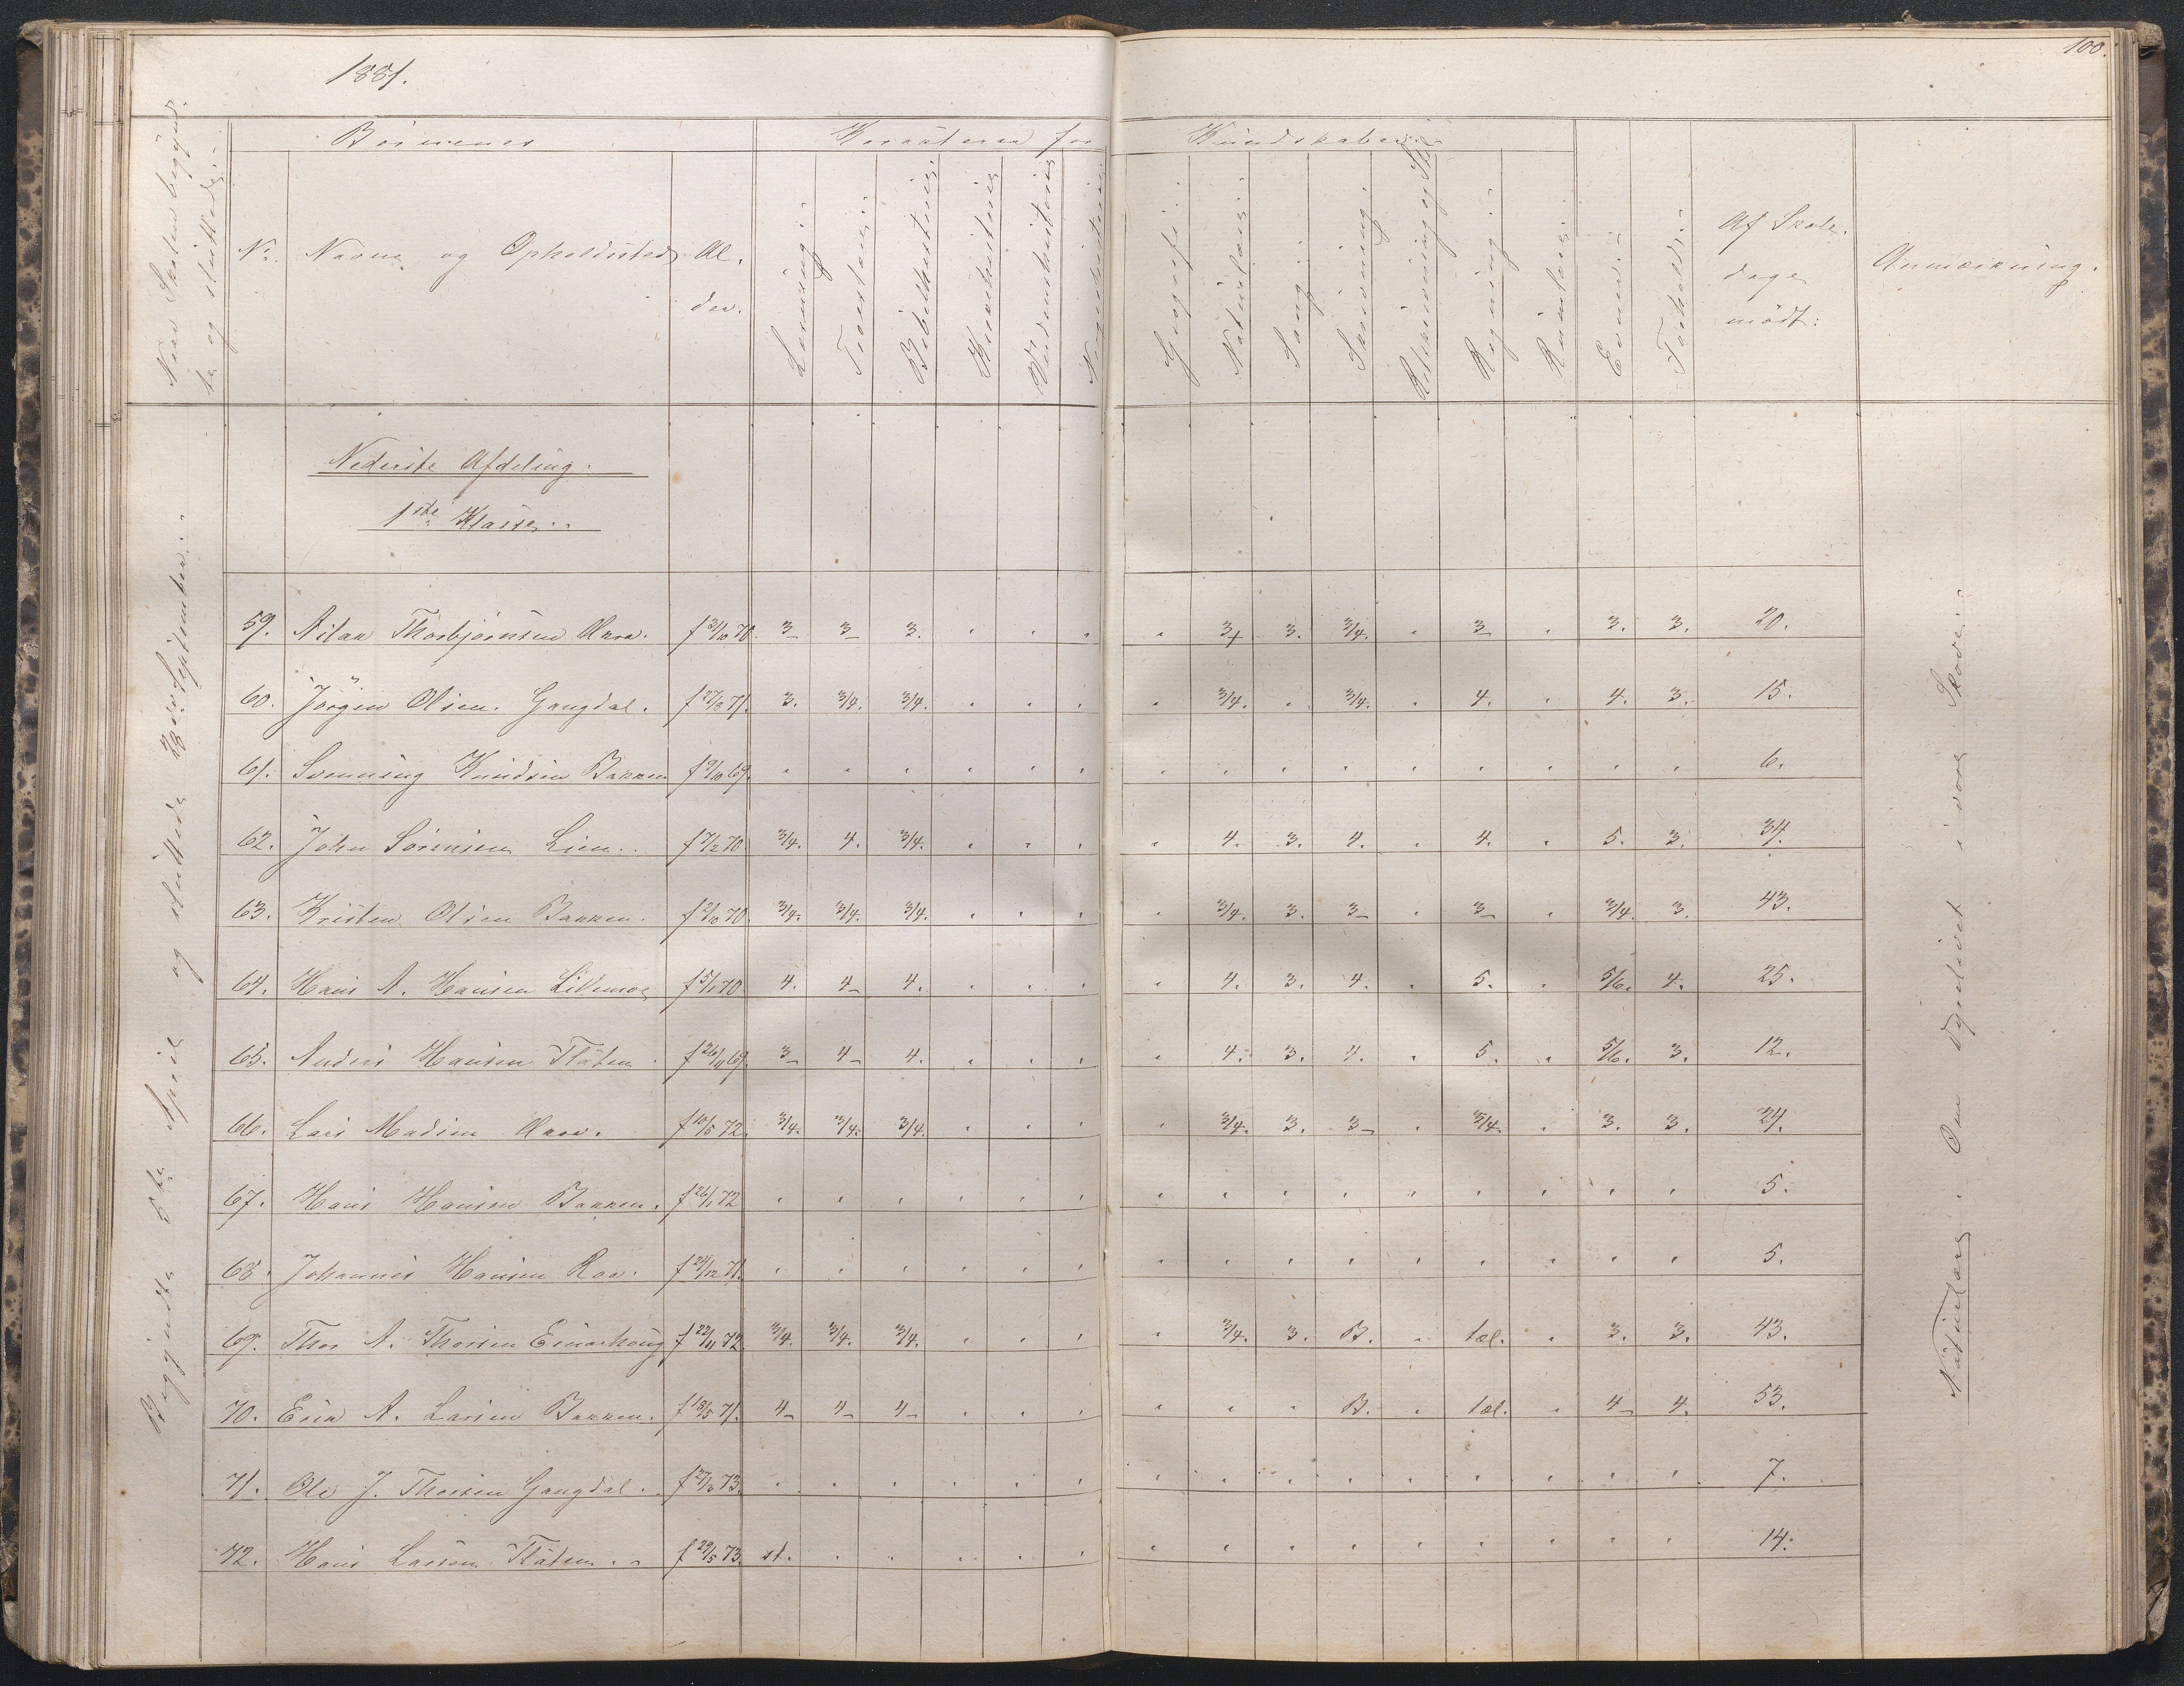 1881.
100.
Naar Skolen begynd-
te og sluttede.
Börnenes
Karakterer for
Kundskaber.
No.
Navne og Opholdssted
Al-
der.
Læsning.
Troeslære.
Bibelhistorie
Kirkehistorie
Verdenshistorie
Geografi.
Naturlære.
Sang.
Skrivning.
Retskrivning og Stil
Regning.
Rumlære.
Evner.
Forhold.
Af Skole-
dage
mödt:
Anmærkning.
Nederste Afdeling.
1ste Klasse.
59. Aslak Thorbjörnsen Aara. f 31/10 70. 3- 3- 3. " " " " 3+ 3. 3/4. " 3- " 3. 3. 20.
60. Jörgen Olsen Gangdal. f 27/3 71. 3. 3/4. 3/4. " " " " 3/4. " 3/4. " 4. " 4. 3. 15.
61. Svenning Knudsen Bakken f 9/10 69. " " " " " " " " " " " " " " " 6.
62. John Sörensen Lien. f 7/2 70 3/4. 4. 3/4. " " " " 4. 3. 4. " 4. " 5. 3. 34.
63. Kristen Olsen Bakken. f 2/10 70. 3/4. 3/4. 3/4. " " " " 3/4. 3. 3- " 3- " 3/4. 3. 43.
64. Hans A. Hansen Lillemoe f 5/1 70 4. 4- 4. " " " " 4. 3. 4. " 5. " 5/6. 4. 25.
65. Anders Hansen Flåten. f 26/11 69. 3- 4- 4. " " " " 4. 3. 4. " 5. " 5/6. 3. 12.
66. Lars Madsen Aara. f 10/5 72. 3/4. 3/4. 3/4. " " " " 3/4. 3. 3- " 3/4. " 3. 3. 24.
67. Hans Hansen Bakken. f 26/1 72 " " " " " " " " " " " " " " " 5.
68. Johannes Hansen Raa. f 24/12 71. " " " " " " " " " " " " " " " 5.
69. Thor A. Thorsen Einarhoug f 22/11 72 3/4. 3/4. 3/4. " " " " 3/4. 3. B. " tæl. " 3. 3. 43.
70. Erik A. Larsen Bakken. f 18/5 71. 4- 4- 4- " " " " " " B. " tæl. " 4- 4. 53.
71. Ole J. Thorsen Gangdal. f 27/3 73. " " " " " " " " " " " " " " " 7.
72. Hans Larsen Flåten. f 29/5 73. st. " " " " " " " " " " " " " " 14.
Begyndte 5te April og sluttede 28de September.
Naturlære. Om Dyrelivet i vore Skove.